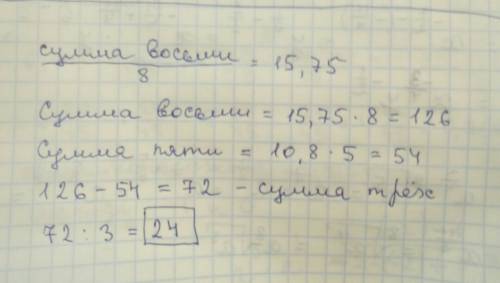 сумма восьми / 8 = 15,75
Сумма восьми = 15,75 · 8 = 126
Сумма пяти = 10,8 · 5 = 54
126 - 54 = 72 - сумма трёх
72 : 3 = 24